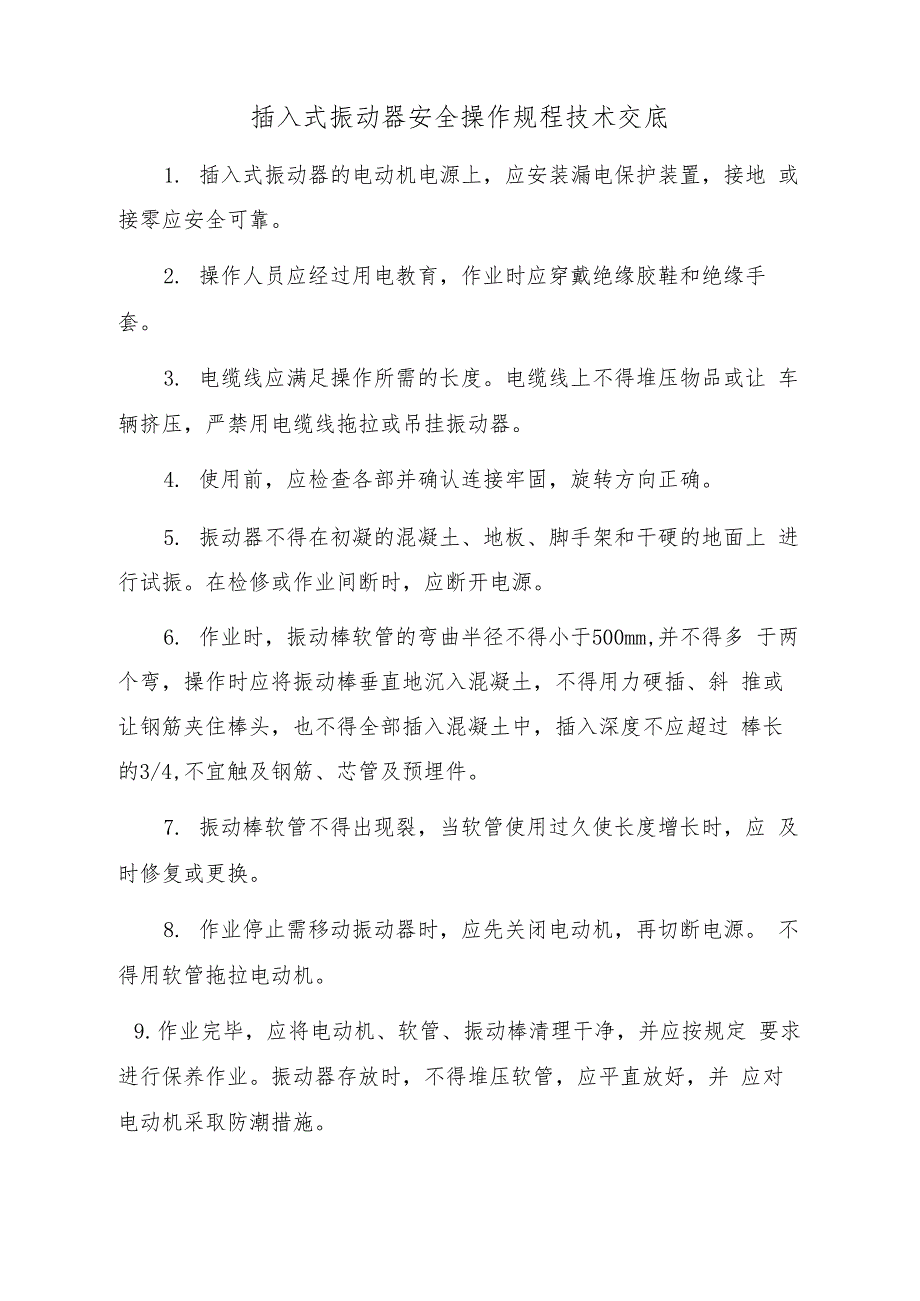 插入式振动器安全操作规程技术交底
1. 插入式振动器的电动机电源上，应安装漏电保护装置，接地 或
接零应安全可靠。
2. 操作人员应经过用电教育，作业时应穿戴绝缘胶鞋和绝缘手
套。
3. 电缆线应满足操作所需的长度。电缆线上不得堆压物品或让 车
辆挤压，严禁用电缆线拖拉或吊挂振动器。
4. 使用前，应检查各部并确认连接牢固，旋转方向正确。
5. 振动器不得在初凝的混凝土、地板、脚手架和干硬的地面上 进
行试振。在检修或作业间断时，应断开电源。
6. 作业时，振动棒软管的弯曲半径不得小于500mm,并不得多 于两
个弯，操作时应将振动棒垂直地沉入混凝土，不得用力硬插、斜 推或
让钢筋夹住棒头，也不得全部插入混凝土中，插入深度不应超过 棒长
的3/4,不宜触及钢筋、芯管及预埋件。
7. 振动棒软管不得出现裂，当软管使用过久使长度增长时，应 及
时修复或更换。
8. 作业停止需移动振动器时，应先关闭电动机，再切断电源。 不
得用软管拖拉电动机。
9.作业完毕，应将电动机、软管、振动棒清理干净，并应按规定 要求
进行保养作业。振动器存放时，不得堆压软管，应平直放好，并 应对
电动机采取防潮措施。